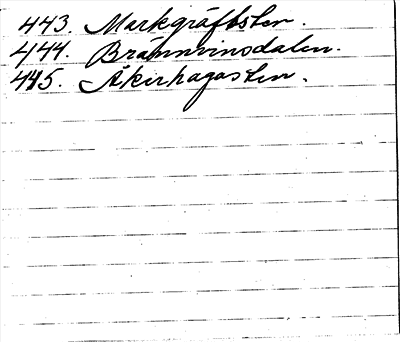 443. Markgräfbsten.
444. Brännvinsdalen.
445. Åkerhagasten.